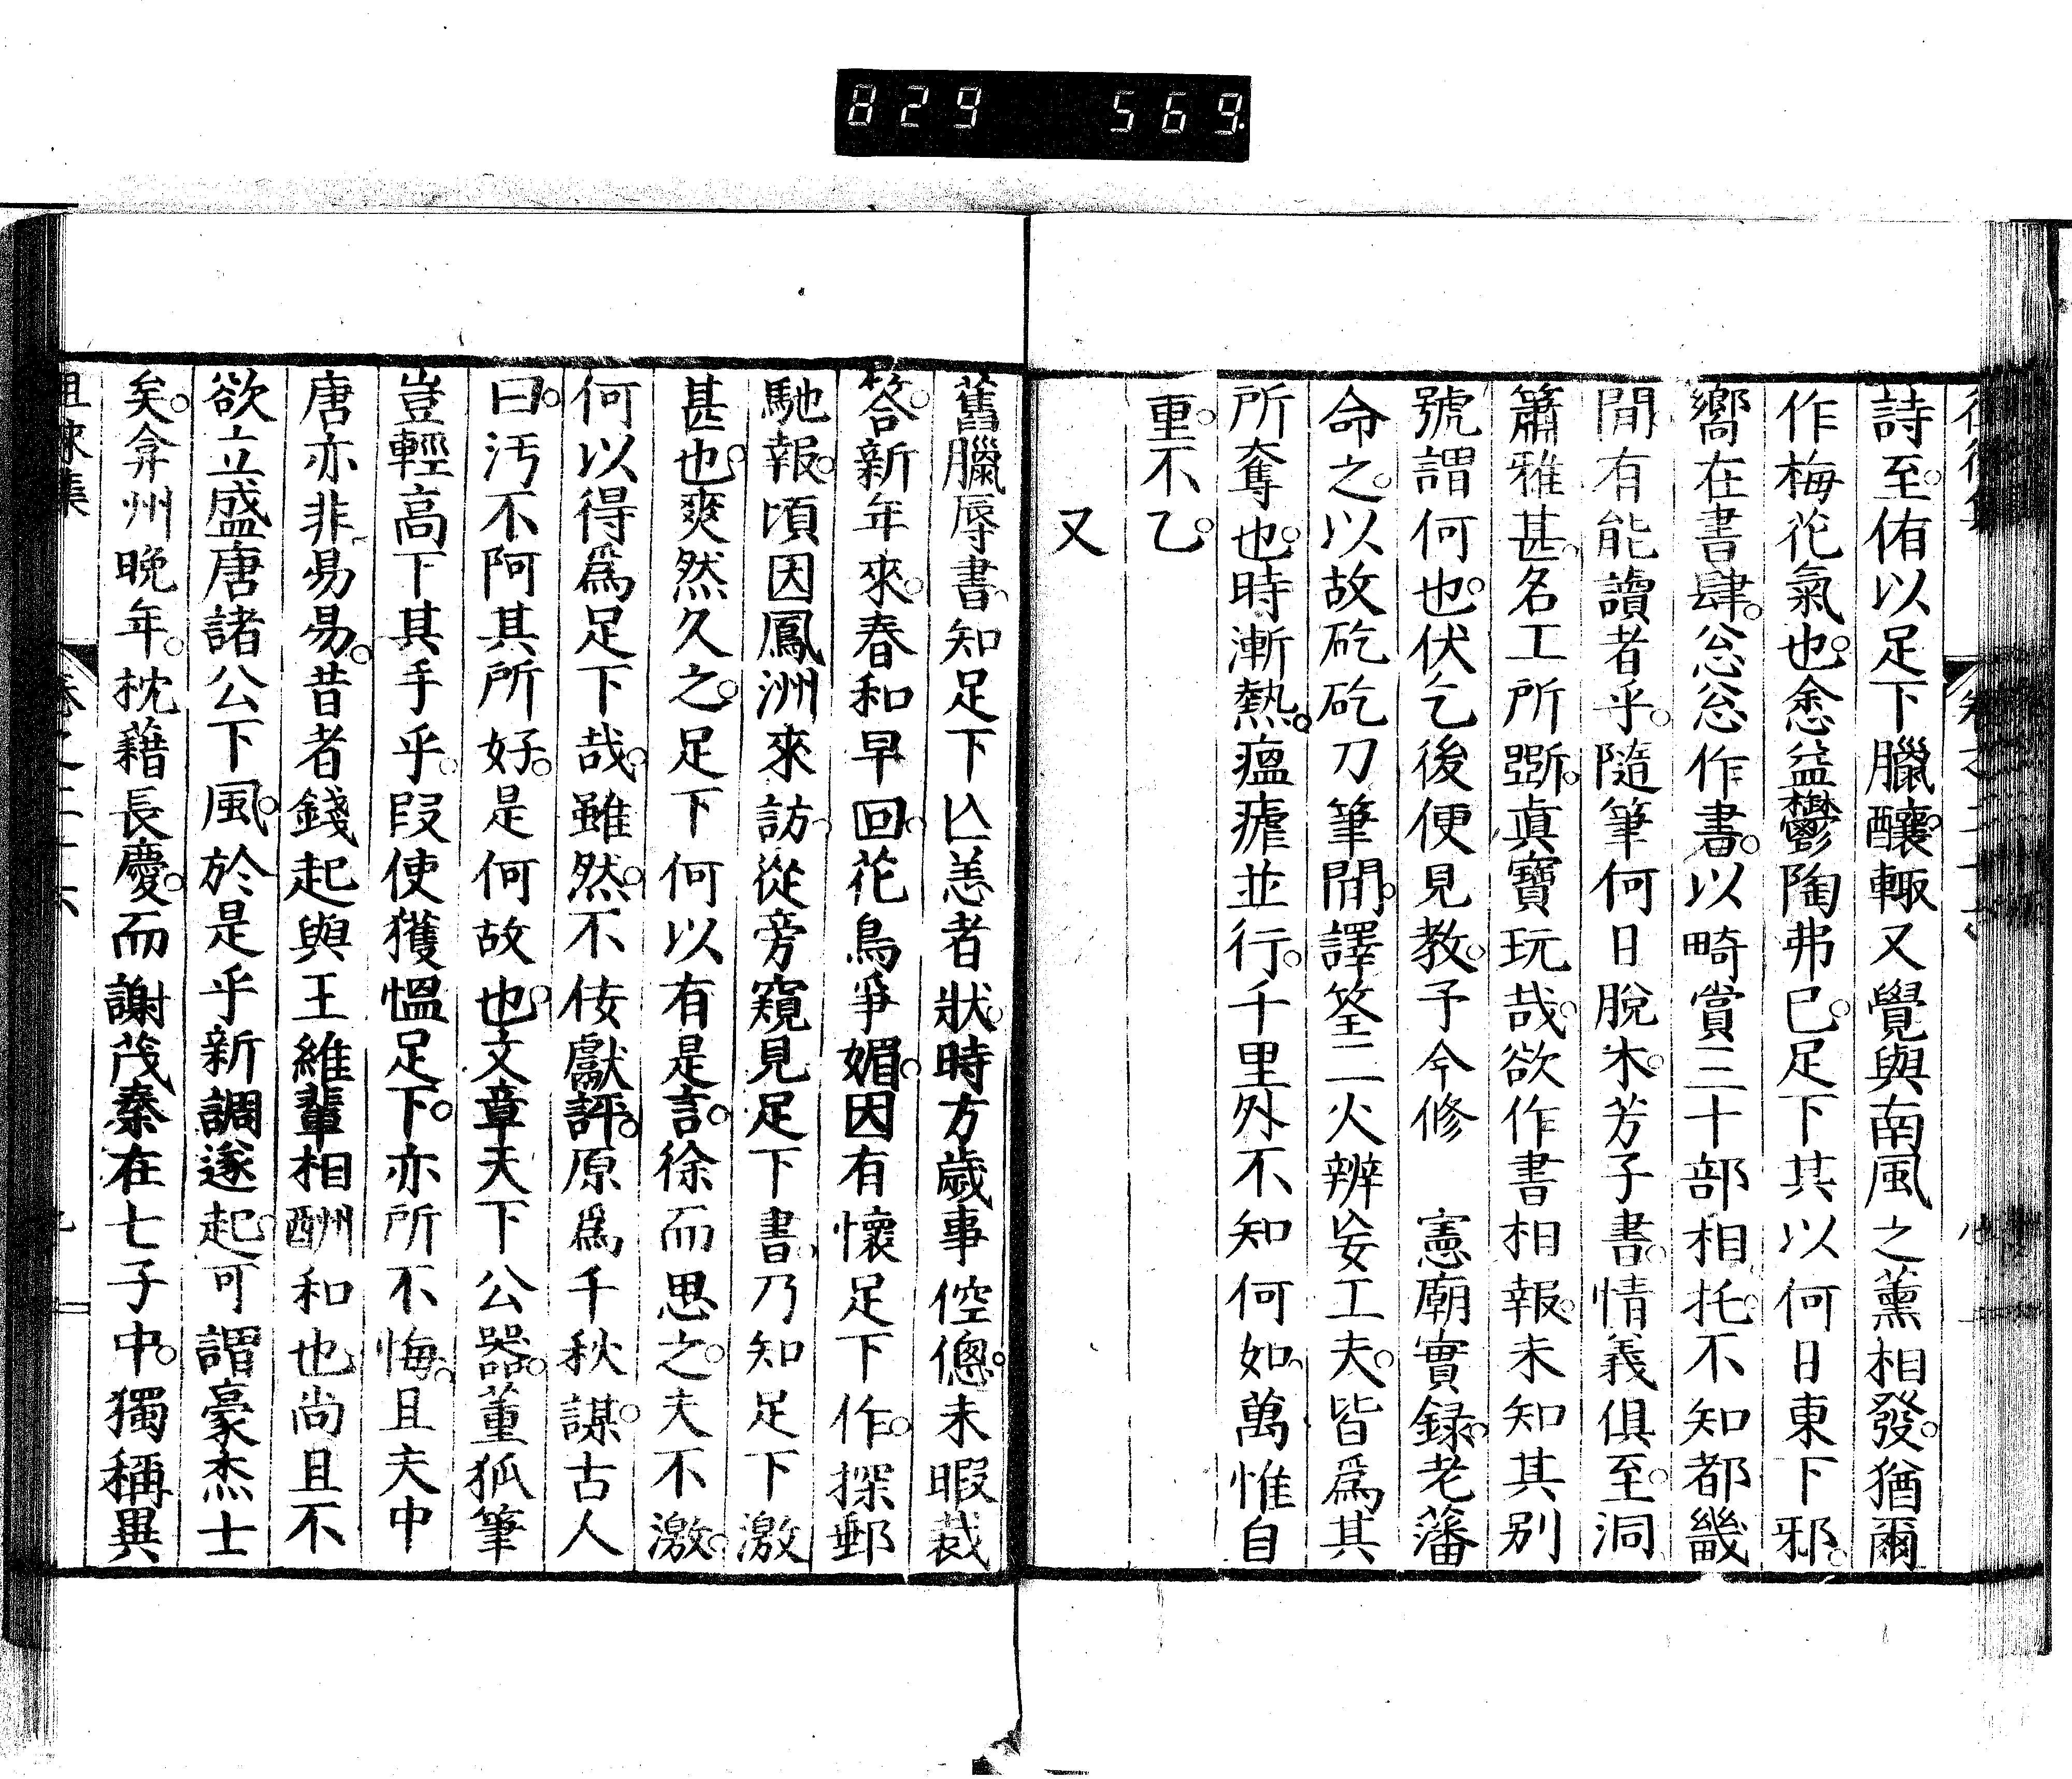 829 569.
詩至。侑以足下臘釀。輙又覺與南風之薰相發。猶爾
作梅花氣也。悆益鬱陶弗已。足下其以何日東下邪。
嚮在書肆。怱怱作書。以畸賞三十部相托。不知都畿
間有能讀者乎。隨筆何日脫木。芳子書。情義俱至。洞
簫雅甚。名工所斲。眞寶玩哉。欲作書相報。未知其別
號謂何也。伏乞後便見教。予今修　憲廟實録。老藩
命之。以故矻矻刀筆間。譯筌二火辨妄工夫。皆爲其
所奪也。時漸熱。瘟瘧並行。千里外不知何如。萬惟自
重。不乙。
又
舊臘辱書。知足下亾恙者狀。時方歲事倥傯。未暇裁
答。新年來。春和早回。花鳥爭媚。因有懷足下作。探郵
馳報。頃因鳳洲來訪。從旁窺見足下書。乃知足下激
甚也。爽然久之。足下何以有是言。徐而思之。夫不激。
何以得爲足下哉。雖然。不佞獻評。原爲千秋謀。古人
曰。汚不阿其所好。是何故也。文章天下公器。董狐筆
豈輕高下其手乎。叚使獲慍足下。亦所不悔。且夫中
唐亦非易易。昔者錢起與王維輩相酬和也。尚且不
欲立盛唐諸公下風。於是乎新調遂起。可謂豪杰士
矣。弇州晩年。枕藉長慶。而謝茂秦在七子中。獨稱異